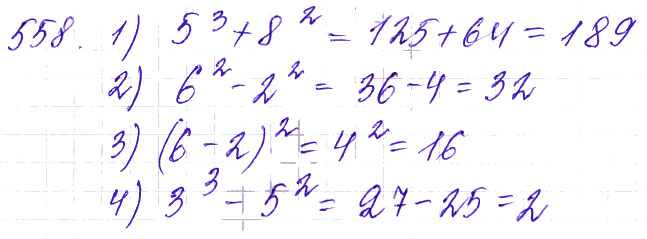 558. 1) 5³ + 8² = 125 + 64 = 189
2) 6² - 2² = 36 - 4 = 32
3) (6 - 2)² = 4² = 16
4) 3³ - 5² = 27 - 25 = 2